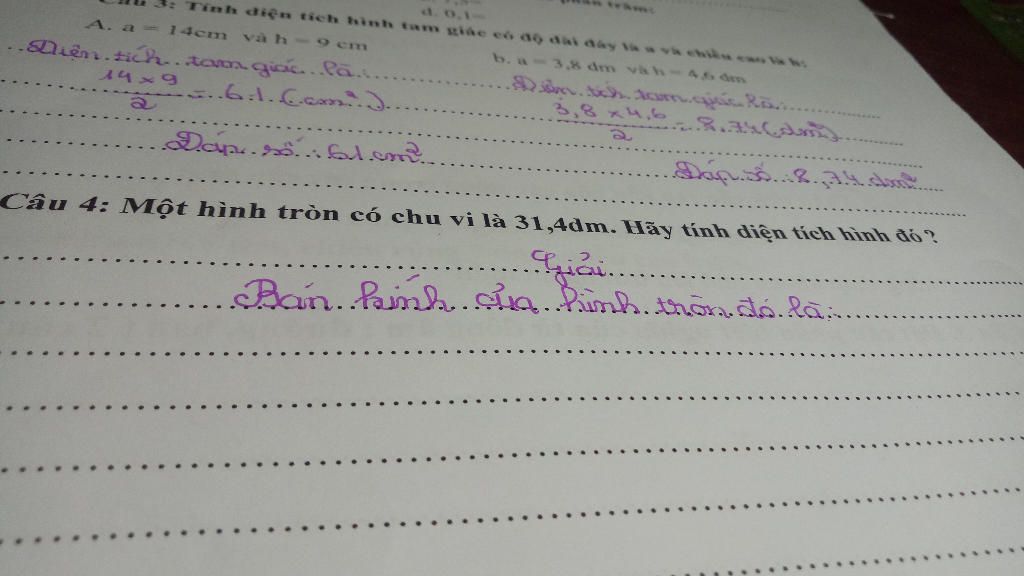 d. 0,1=
Câu 3: Tính diện tích hình tam giác có độ dài đáy là a và chiều cao là h:
A. a = 14cm và h = 9 cm
b. a = 3,8 dm và h = 4,6 dm
Diện tích tam giác là:
14 × 9
2
= 61 (cm²)
Đáp số: 61 cm²
Diện tích tam giác là:
3,8 × 4,6
2
= 8,74 (dm²)
Đáp số: 8,74 dm²
Câu 4: Một hình tròn có chu vi là 31,4dm. Hãy tính diện tích hình đó?
Giải
Bán kính của hình tròn đó là: